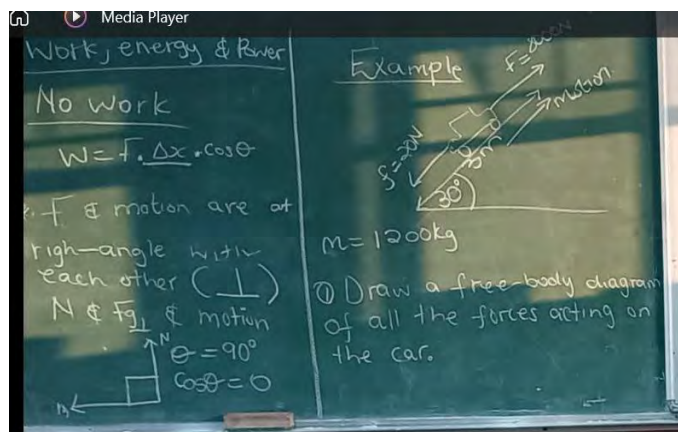 Media Player
Work, energy & Power
No work
W = F . Δx . cosθ
F & motion are at
righ-angle with
each other (⊥)
N & Fg⊥ & motion
N
θ = 90°
Cosθ = 0
Example
motion
30°
m = 1200kg
① Draw a free-body diagram
of all the forces acting on
the car.